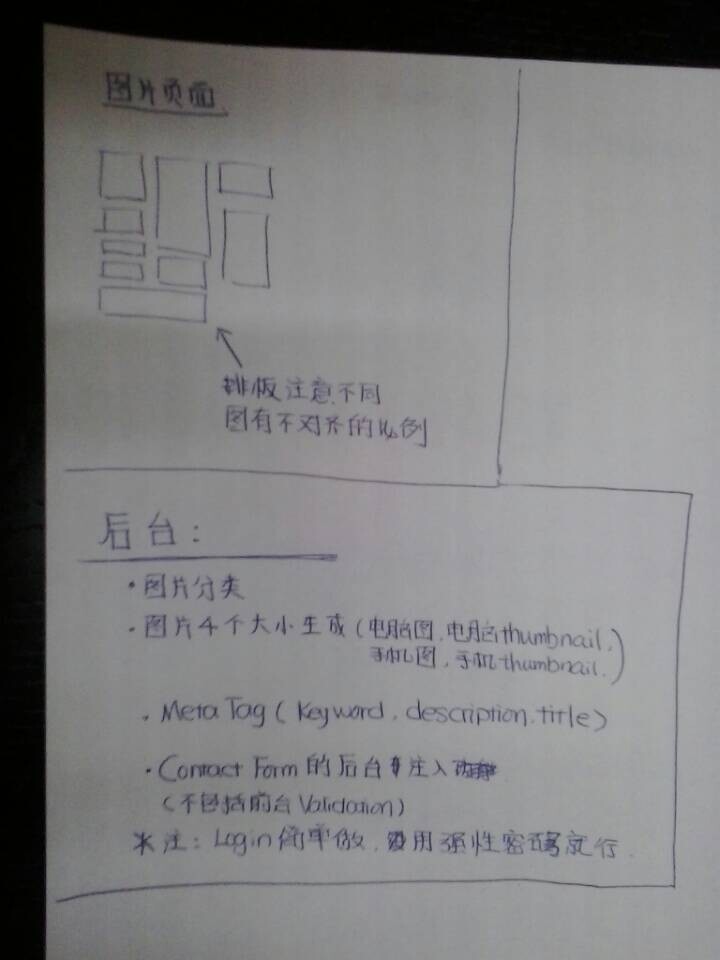 图片页面
排版注意不同
图有不对齐的比例
后台:
·图片分类
·图片4个大小生成(电脑图,电脑thumbnail,
手机图,手机thumbnail.)
·Meta Tag ( Keyword, description, title)
·Contact Form的后台 注入
(不包括前台Validation)
*注: Login简单做, 用强性密码就行.